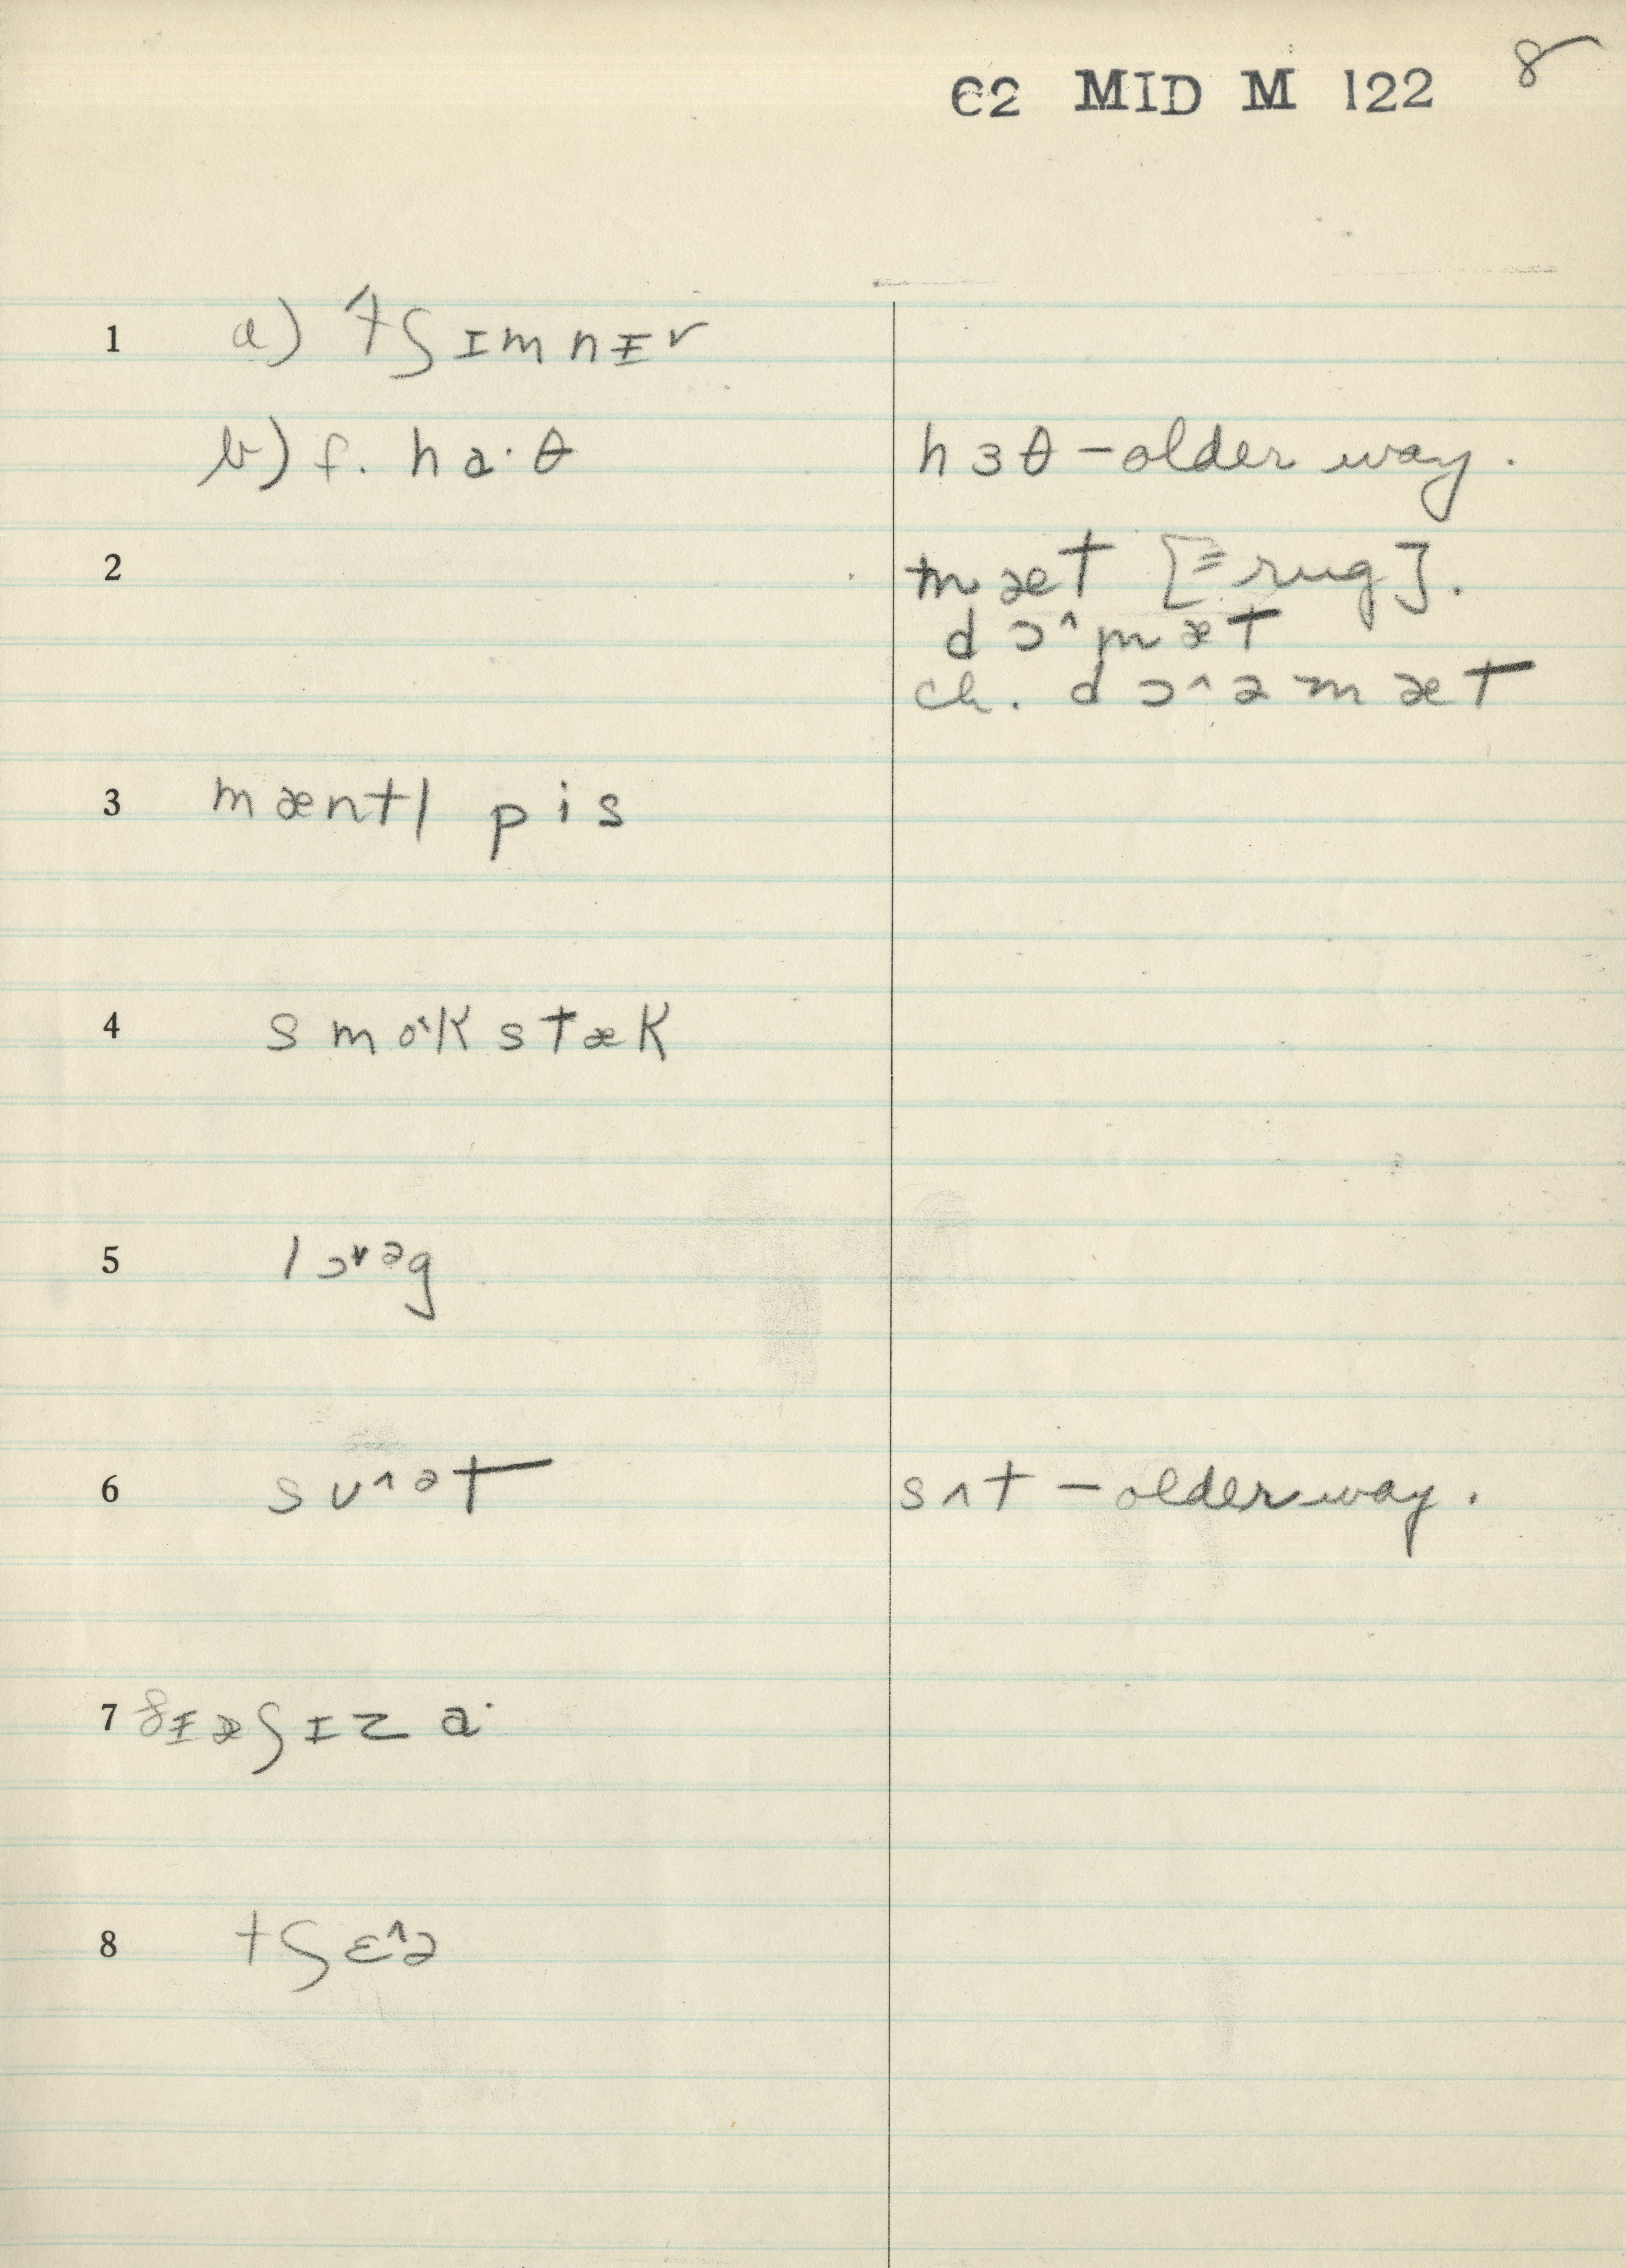 62 MID M 122 8
1 a) tʃɪmnɨv
b) f. ha·θ hɜθ – older way.
2 mæt [= rug].
dɔ^mæt
ch. dɔ^əmæt
3 mæntl pis
4 smo˂kstæk
5 lɔ˅ᵊg
6 sʊ^ᵊt sʌt – older way.
7 ðɨ æʃɪz a·
8 tʃɛ^ə